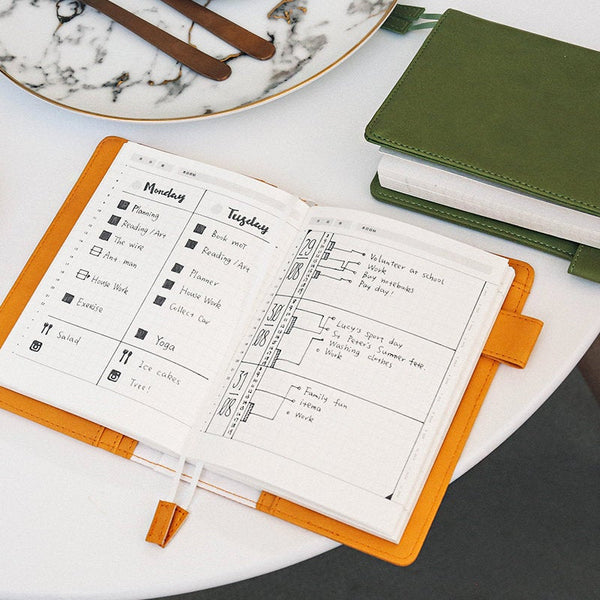 Monday
Planning
Reading/Art
The wire
Ant man
House Work
Exercise
Salad
Tuesday
Book MOT
Reading/Art
Planner
House Work
Collect Car
Yoga
Ice cakes
Tree!
29
08
Volunteer at school
Work
Buy notebooks
Pay day!
30
08
Lucy's Sport day
St Peter's Summer fete
Washing clothes
Work
31
08
Family fun
items
Work